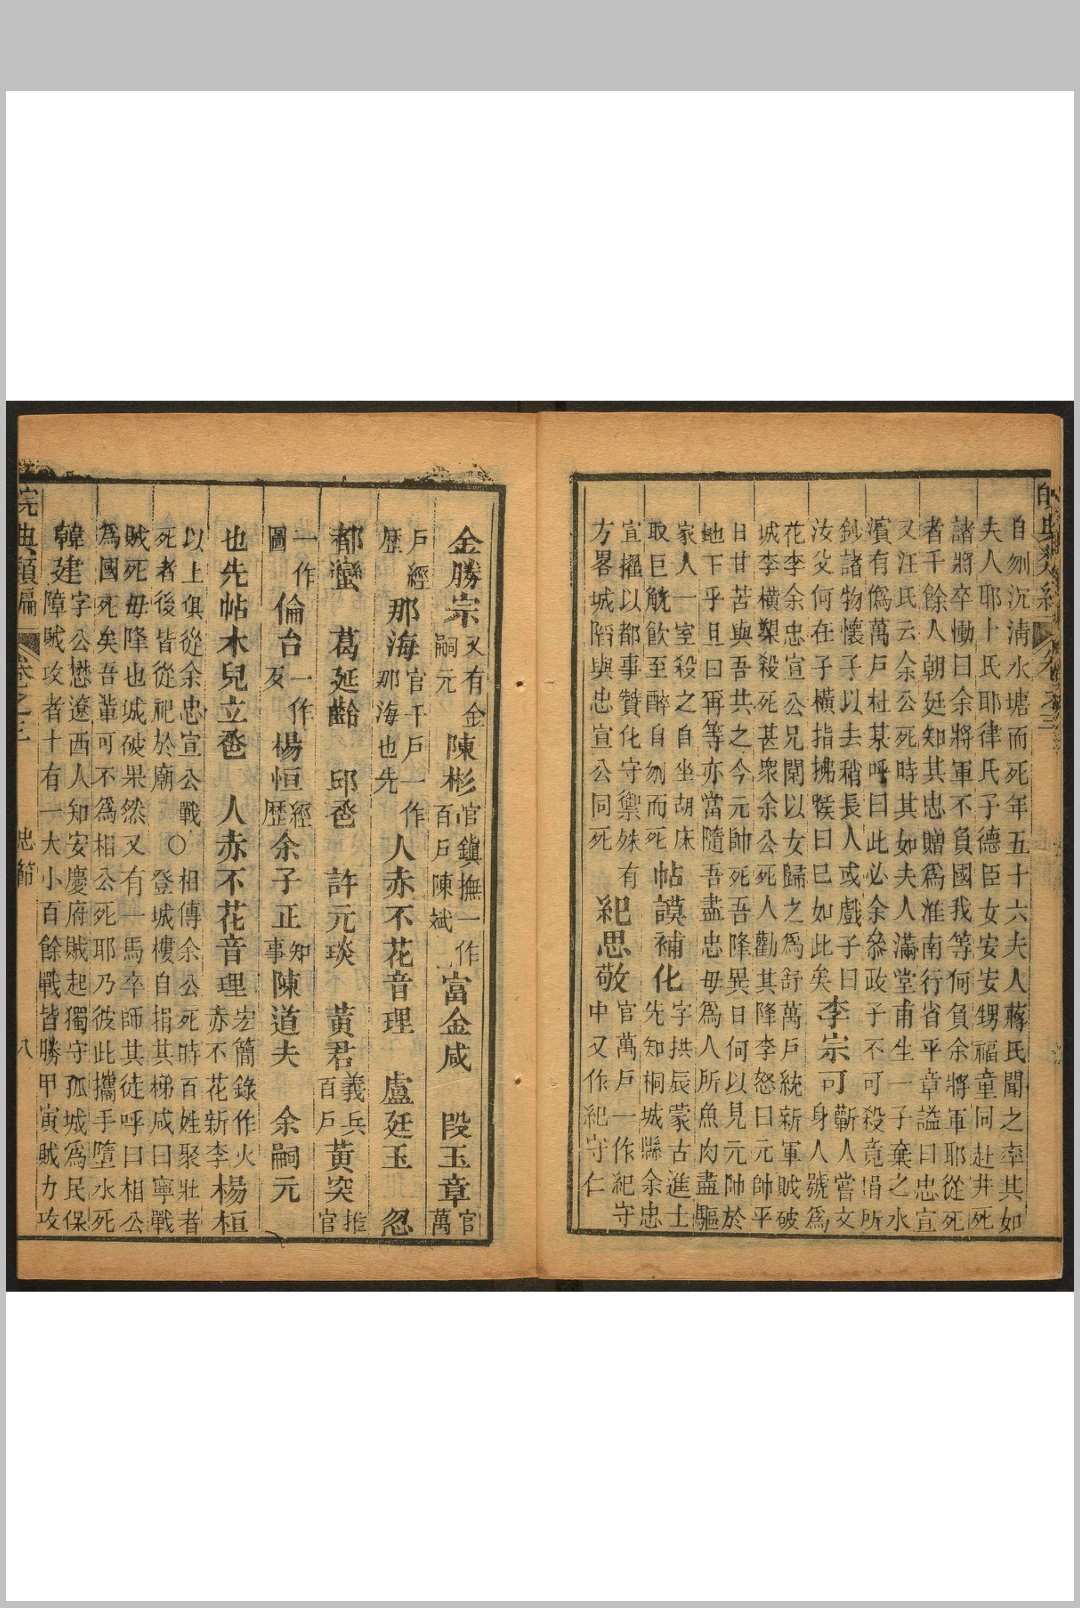 自刎沉淸水塘而死年五十六夫人蔣氏聞之率其如
夫人耶卜氏耶律氏子德臣女安安甥福童同赴井死
諸將卒慟曰余將軍不負國我等何負余將軍耶從死
者千餘人朝廷知其忠贈爲淮南行省平章謚曰忠宣
又汪氏云余公死時其如夫人滿堂甫生一子棄之水
濱有僞萬戶杜某呼曰此必余叅政子不可殺竟涓所
鈔諸物懷子以去稍長人或戲子曰
汝父何在子橫指拂𠉀曰已如此矣
李宗可
蘄人嘗文
身人號爲
花李余忠宣公兄閏以女歸之爲舒萬戶統新軍賊破
城李橫槊殺死甚衆余公死人勸其降李怒曰元帥平
日甘苦與吾共之今元帥死吾降異日何以見元帥於
地下乎且曰再等亦當隨吾盡忠毋爲人所魚肉盡驅
家人一室殺之自坐胡床
取巨觥飮至醉自刎而死
帖謨補化
字拱辰蒙古進士
先知桐城縣余忠
宣擢以都事贊化守禦殊有
方畧城䧟與忠宣公同死
紀思敬
官萬戶一作紀守
中又作紀守仁
皖典類編
卷之三
金勝宗
又有金
嗣元
陳彬
官鎭撫一作
百戶陳斌
富金咸
段玉章
官
萬
戶經
歷
那海
官千戶一作
那海也先
人赤不花音理
盧廷玉
忽
都蠻
葛延齡
邱卺
許元琰
黃君
義兵
百戶
黃突
推
官
一作
圖
倫台
一作
友
楊恒
經
歷
余子正
知
事
陳道夫
余嗣元
也先帖木兒立卺
人赤不花音理
宏簡錄作火
赤不花新李
楊桓
以上俱從余忠宣公戰
死者後皆從祀於廟
○相傳余公死時百姓聚壯者
登城樓自捐其梯咸曰寧戰
賊死毋降也城破果然又有一馬卒師其徒呼曰相公
爲國死矣吾輩可不爲相公死耶乃彼此攜手墮水死
韓建
字公懋遼西人知安慶府賊起獨守孤城爲民保
障賊攻者十有一大小百餘戰皆勝甲寅賊力攻
皖典類編
卷之三
忠節
八